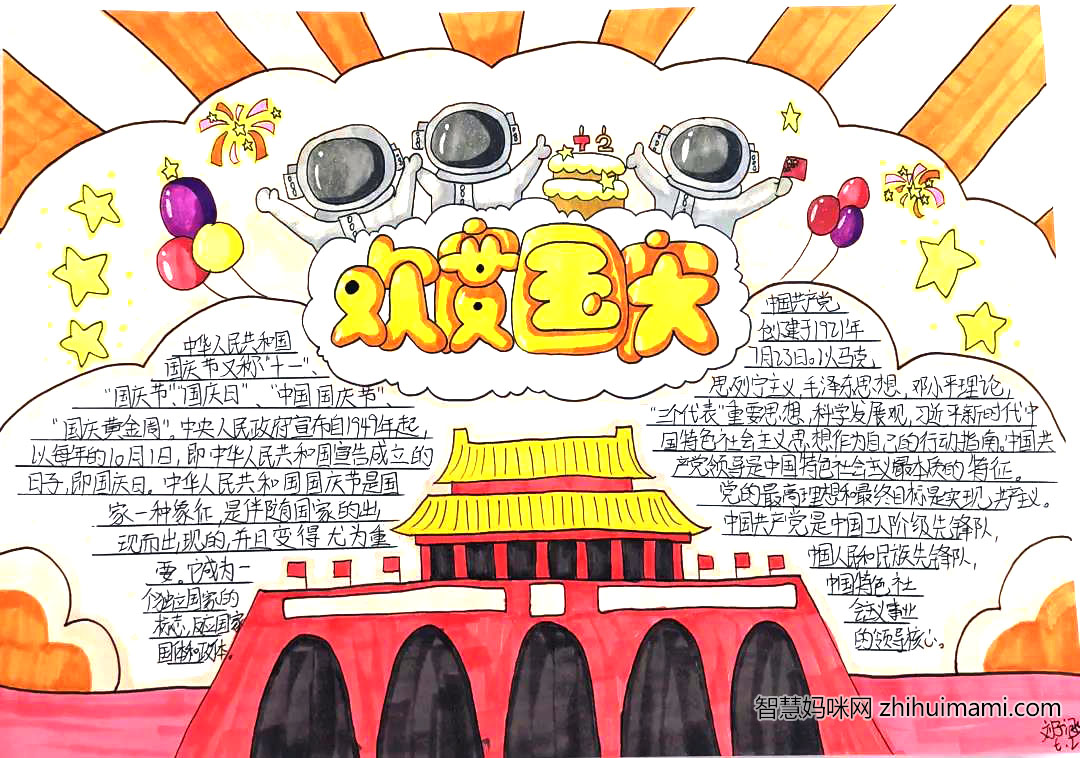 欢度国庆
中华人民共和国
国庆节又称"十一"、
"国庆节"、"国庆日"、"中国国庆节"、
"国庆黄金周"。中央人民政府宣布自1949年起,
以每年的10月1日,即中华人民共和国宣告成立的
日子,即国庆日。中华人民共和国国庆节是国
家一种象征,是伴随国家的出
现而出现的,并且变得尤为重
要。它成为一
个独立国家的
标志,反应国家
国体和政体。
中国共产党
创建于1921年
7月23日。以马克,
思列宁主义,毛泽东思想,邓小平理论,
"三个代表"重要思想,科学发展观,习近平新时代中
国特色社会主义思想作为自己的行动指南。中国共
产党领导是中国特色社会主义最本质的特征。
党的最高理想和最终目标是实现共产主义。
中国共产党是中国工人阶级先锋队,
中国人民和民族先锋队,
中国特色社
会主义事业
的领导核心。
智慧妈咪网 zhihuimami.com